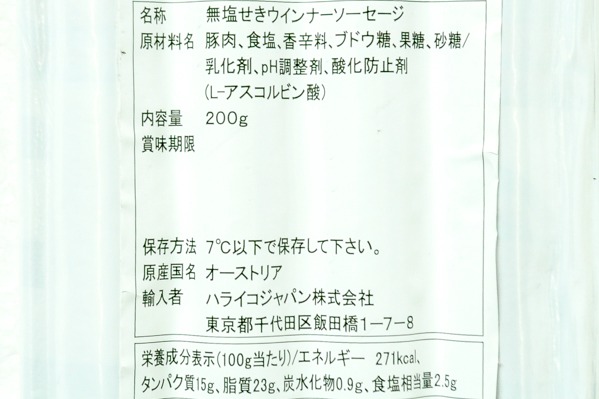 名称 無塩せきウインナーソーセージ
原材料名 豚肉、食塩、香辛料、ブドウ糖、果糖、砂糖/
乳化剤、pH調整剤、酸化防止剤
(L-アスコルビン酸)
内容量 200g
賞味期限
保存方法 7℃以下で保存して下さい。
原産国名 オーストリア
輸入者 ハライコジャパン株式会社
東京都千代田区飯田橋1-7-8
栄養成分表示(100g当たり)/エネルギー 271kcal、
タンパク質15g、脂質23g、炭水化物0.9g、食塩相当量2.5g